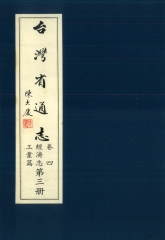 台灣省通志
陳大慶
卷四
經濟志
工業篇
第三册